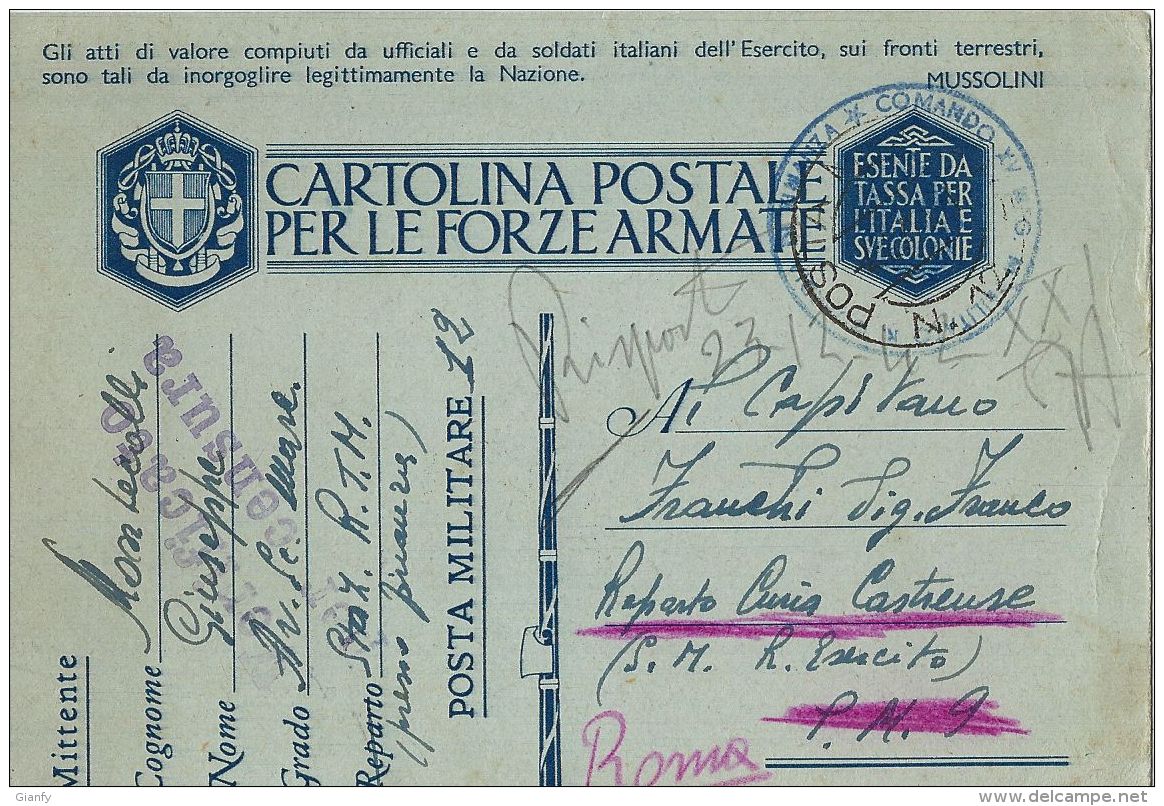 Gli atti di valore compiuti da ufficiali e da soldati italiani dell'Esercito, sui fronti terrestri,
sono tali da inorgoglire legittimamente la Nazione.
MUSSOLINI
CARTOLINA POSTALE
PER LE FORZE ARMATE
ESENTE DA
TASSA PER
L'ITALIA E
SVE COLONIE
COMANDO XV
POSTA N.
Rispost
23-12-42 XXI
Al Capitano
Franchi Sig. Franco
Reparto Curia Castrense
(S. M. R. Esercito)
P. M. 9
Roma
Mittente
Cognome
Nome Giuseppe
Grado Av. Sc. Mare.
Reparto Staz. R.T.M.
(presso finanza)
POSTA MILITARE 12
censura
Gianfy
www.delcampe.net